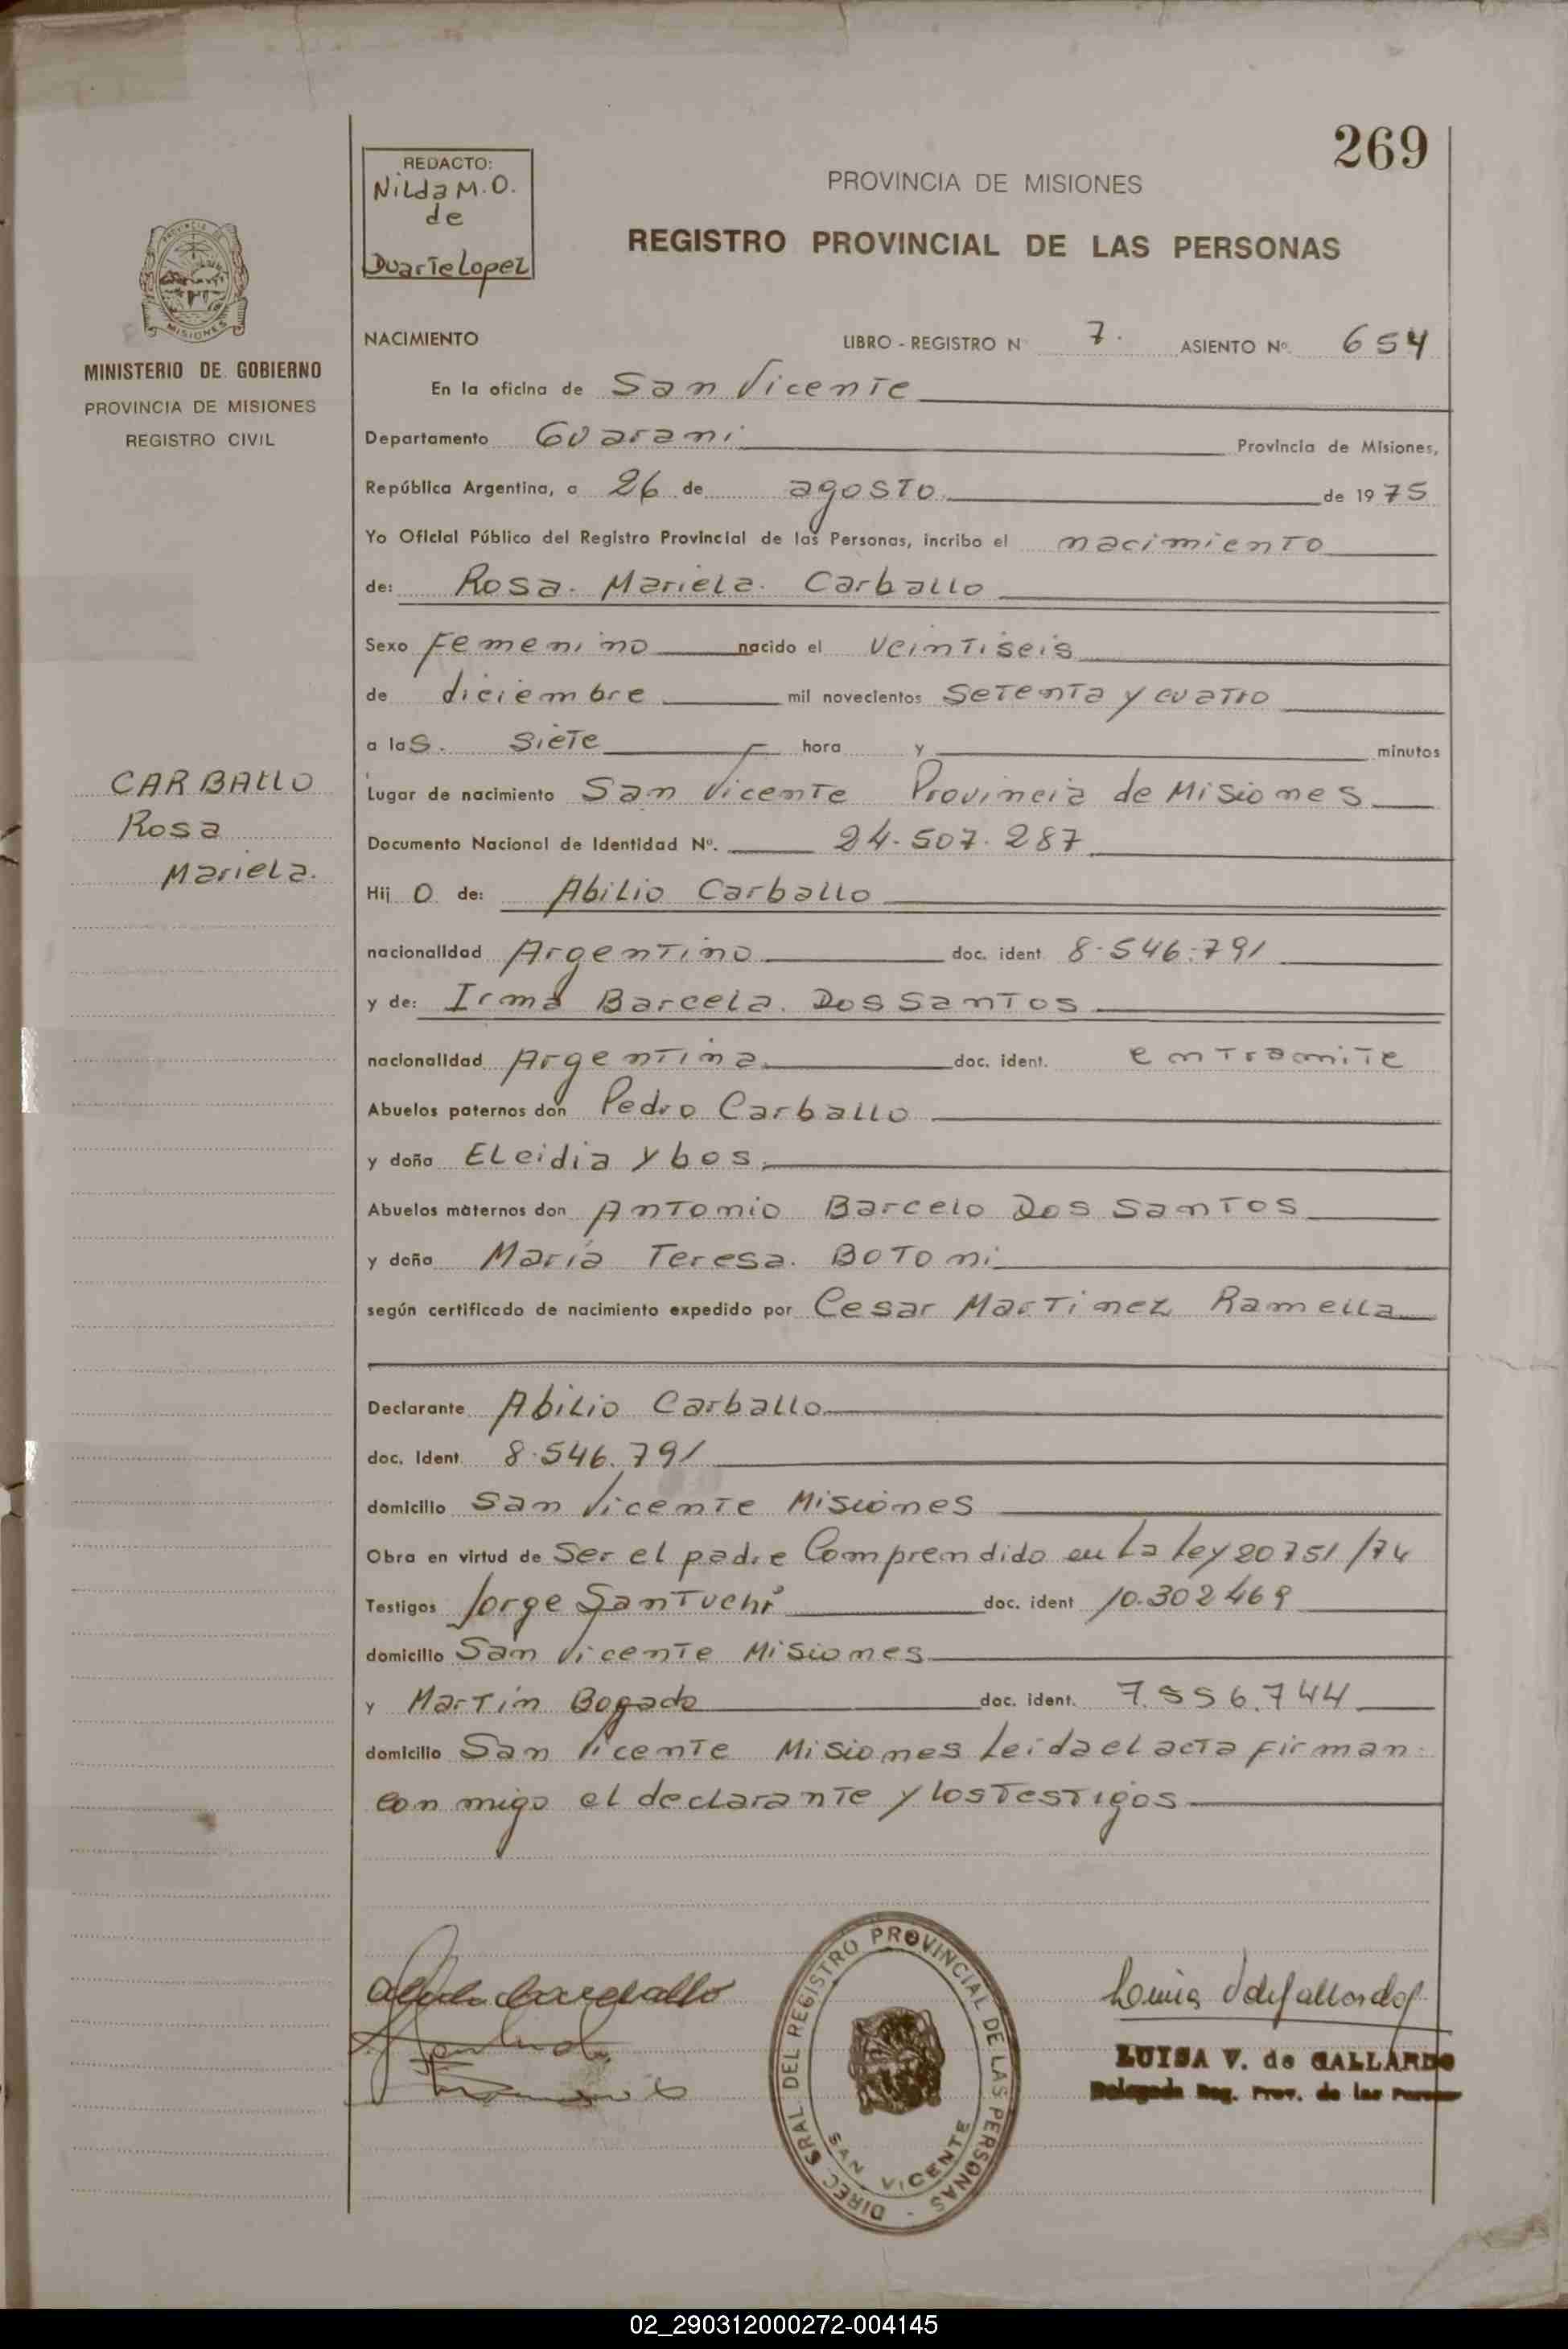 269
REDACTO:
Nilda M.O.
de
Duarte Lopez
PROVINCIA DE MISIONES
REGISTRO PROVINCIAL DE LAS PERSONAS
MISIONES
MINISTERIO DE GOBIERNO
PROVINCIA DE MISIONES
REGISTRO CIVIL
CARBALLO
Rosa
Mariela.
NACIMIENTO LIBRO - REGISTRO N 7. ASIENTO Nº. 654
En la oficina de San Vicente
Departamento Guarani Provincia de Misiones,
República Argentina, a 26 de agosto de 1975
Yo Oficial Público del Registro Provincial de las Personas, incribo el nacimiento
de: Rosa. Mariela. Carballo
Sexo Femenino nacido el veintiseis
de diciembre mil novecientos setenta y cuatro
a las. siete hora y minutos
Lugar de nacimiento San Vicente Provincia de Misiones
Documento Nacional de Identidad Nº. 24.507.287
Hij o de: Abilio Carballo
nacionalidad Argentino doc. ident. 8.546.791
y de: Irma Barcela. Dos Santos
nacionalidad Argentina doc. ident. en tramite
Abuelos paternos don Pedro Carballo
y doña Eleidia Ybos
Abuelos maternos don Antonio Barcelo Dos Santos
y doña María Teresa. Botoni
según certificado de nacimiento expedido por Cesar Martinez Ramella
Declarante Abilio Carballo
doc. Ident. 8.546.791
domicilio San Vicente Misiones
Obra en virtud de Ser el padre Comprendido en La ley 20751/74
Testigos Jorge Santuchi doc. ident 10.302469
domicilio San Vicente Misiones
y Martín Bogado doc. ident. 7.556.744
domicilio San Vicente Misiones Leida el acta firman
con migo el declarante y los Testigos
DIREC GRAL DEL REGISTRO PROVINCIAL DE LAS PERSONAS -
SAN VICENTE
LUISA V. de GALLARDO
Delegada Reg. Prov. de las Personas
02_290312000272-004145